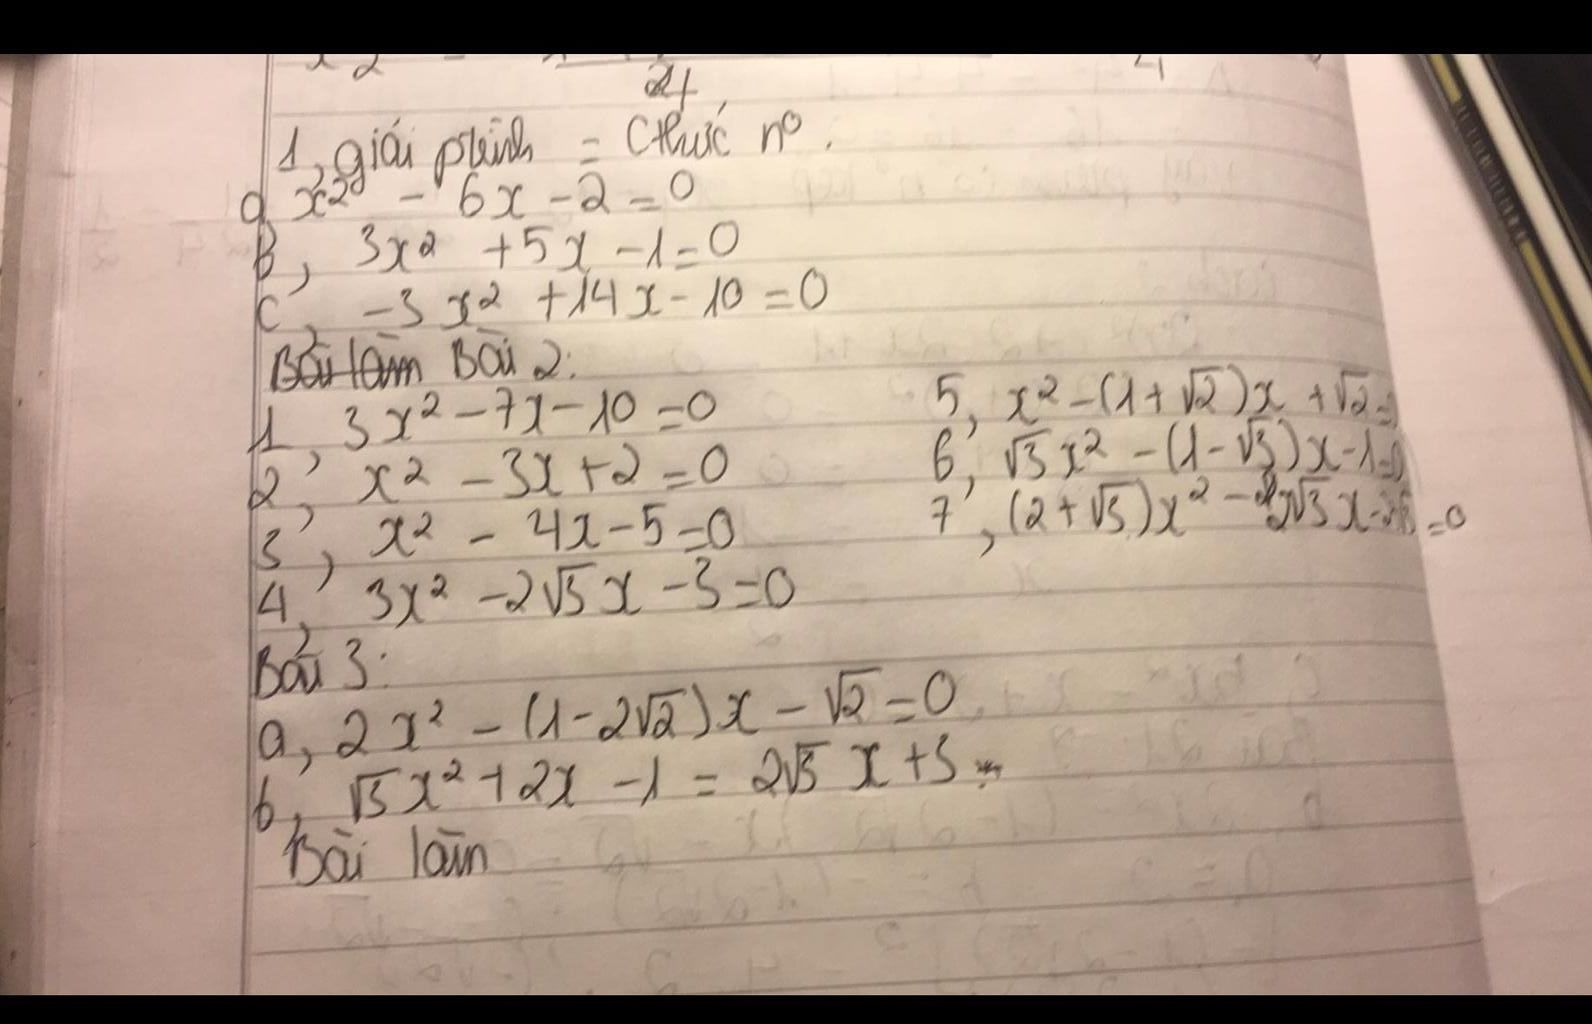 x2
24
4
1, giải ptrình = Cthức nº.
a, x² - 6x - 2 = 0
B, 3x² + 5x - 1 = 0
C, -3x² + 14x - 10 = 0
Bài làm Bài 2:
1, 3x² - 7x - 10 = 0
2, x² - 3x + 2 = 0
3, x² - 4x - 5 = 0
4, 3x² - 2√3x - 3 = 0
5, x² - (1 + √2)x + √2 =
6, √3x² - (1 - √3)x - 1 = 0
7, (2 + √3)x² - 2√3x = 0
Bài 3:
a, 2x² - (1 - 2√2)x - √2 = 0
b, √3x² + 2x - 1 = 2√3x + 3
Bài làm